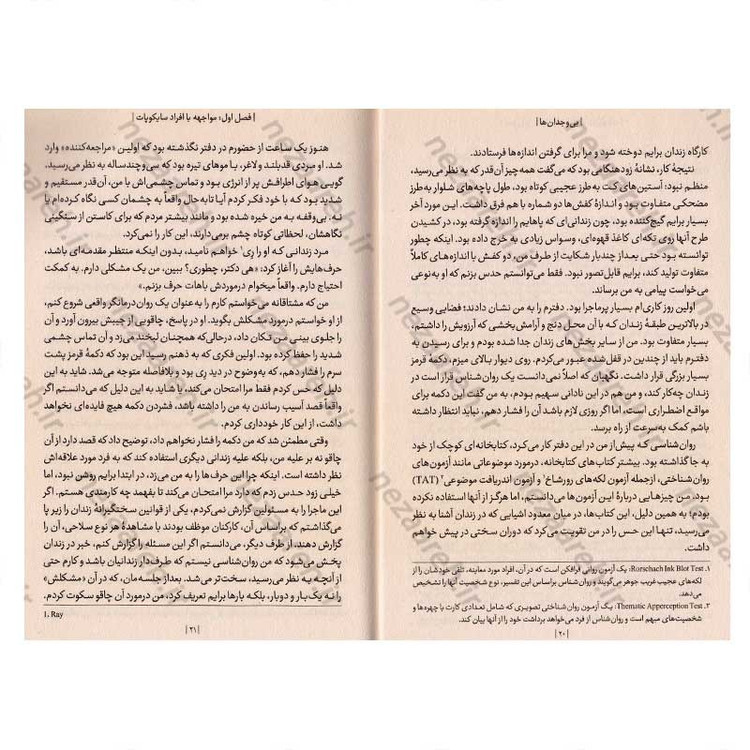 | بی‌وجدان‌ها |
کارگاه زندان برایم دوخته شود و مرا برای گرفتن اندازه‌ها فرستادند.
نتیجهٔ کار، نشانهٔ زودهنگامی بود که می‌گفت همه‌چیز آن‌قدر که به نظر می‌رسید،
منظم نبود؛ آستین‌های کت به‌طرز عجیبی کوتاه بود، طول پاچه‌های شلوار به‌طرز
مضحکی متفاوت بود و اندازهٔ کفش‌ها دو شماره با هم فرق داشت. این مورد آخر
بسیار برایم گیج‌کننده بود، چون زندانی‌ای که پاهایم را اندازه گرفته بود، در کشیدن
طرح آنها روی تکه‌ای کاغذ قهوه‌ای، وسواس زیادی به خرج داده بود. اینکه چطور
توانسته بود حتی بعد از چندبار شکایت از طرف من، دو کفش با اندازه‌های کاملاً
متفاوت تولید کند، برایم قابل تصور نبود. فقط می‌توانستم حدس بزنم که او به‌نوعی
می‌خواست پیامی به من برساند.
اولین روز کاری‌ام بسیار پرماجرا بود. دفترم را به من نشان دادند؛ فضایی وسیع
در بالاترین طبقهٔ زندان که با آن محل دنج و آرامش‌بخشی که آرزویش را داشتم،
بسیار متفاوت بود. من از سایر بخش‌های زندان جدا شده بودم و برای رسیدن به
دفترم باید از چندین در قفل‌شده عبور می‌کردم. روی دیوار بالای میزم، دکمهٔ قرمز
بسیار بزرگی قرار داشت. نگهبان که اصلاً نمی‌دانست یک روان‌شناس قرار است در
زندان چه‌کار کند، و من هم در این نادانی سهیم بودم، به من گفت این دکمه برای
مواقع اضطراری است، اما اگر روزی لازم باشد آن را فشار دهم، نباید انتظار داشته
باشم کمک به‌سرعت از راه برسد.
روان‌شناسی که پیش از من در این دفتر کار می‌کرد، کتابخانه‌ای کوچک از خود
به جا گذاشته بود. بیشتر کتاب‌های کتابخانه، درمورد موضوعاتی مانند آزمون‌های
روان‌شناختی، ازجمله آزمون لکه‌های رورشاخ¹ و آزمون اندریافت موضوعی² (TAT)
بود. من چیزهایی دربارهٔ این آزمون‌ها می‌دانستم، اما هرگز از آنها استفاده نکرده
بودم؛ به همین دلیل، این کتاب‌ها، در میان معدود اشیایی که در زندان آشنا به نظر
می‌رسید، تنها این حس را در من تقویت می‌کرد که دوران سختی در پیش خواهم
داشت.
۱. Rorschach Ink Blot Test: یک آزمون روانی فرافکن است که در آن، افراد مورد معاینه، تلقی خودشان را از
لکه‌های عجیب غریب جوهر می‌گویند و روان‌شناس براساس این تفسیر، نوع شخصیت آنها را تشخیص
می‌دهد.
۲. Thematic Apperception Test: یک آزمون روان‌شناختی تصویری که شامل تعدادی کارت با چهره‌ها و
شخصیت‌های مبهم است و روان‌شناس از فرد می‌خواهد برداشت خود را از آنها بیان کند.
| ۲۰ |
| فصل اول: مواجهه با افراد سایکوپات |
هنوز یک ساعت از حضورم در دفتر نگذشته بود که اولین «مراجعه‌کننده» وارد
شد. او مردی قدبلند و لاغر، با موهای تیره بود که سی‌وچندساله به نظر می‌رسید.
گویی هوای اطرافش پر از انرژی بود و تماس چشمی‌اش با من، آن‌قدر مستقیم و
شدید بود که با خود فکر کردم آیا تابه‌حال واقعاً به چشمان کسی نگاه کرده‌ام یا
نه. بی‌وقفه به من خیره شده بود و مانند بیشتر مردم که برای کاستن از سنگینی
نگاهشان، لحظاتی کوتاه چشم برمی‌دارند، این کار را نمی‌کرد.
مرد زندانی که او را رِی¹ خواهم نامید، بدون اینکه منتظر مقدمه‌ای باشد،
حرف‌هایش را آغاز کرد: «هی دکتر، چطوری؟ ببین، من یک مشکلی دارم. به کمکت
احتیاج دارم. واقعاً میخوام درموردش باهات حرف بزنم.»
من که مشتاقانه می‌خواستم کارم را به‌عنوان یک روان‌درمانگر واقعی شروع کنم،
از او خواستم درمورد مشکلش بگوید. او در پاسخ، چاقویی از جیبش بیرون آورد و آن
را جلوی بینی من تکان داد، درحالی‌که همچنان لبخند می‌زد و آن تماس چشمی
شدید را حفظ کرده بود. اولین فکری که به ذهنم رسید این بود که دکمهٔ قرمز پشت
سرم را فشار دهم، که به‌وضوح در دید رِی بود و بلافاصله متوجه می‌شد. شاید به این
دلیل که حس کردم فقط مرا امتحان می‌کند، یا شاید به این دلیل که می‌دانستم اگر
واقعاً قصد آسیب رساندن به من را داشته باشد، فشردن دکمه هیچ فایده‌ای نخواهد
داشت، از این کار خودداری کردم.
وقتی مطمئن شد که من دکمه را فشار نخواهم داد، توضیح داد که قصد دارد از آن
چاقو نه بر علیه من، بلکه علیه زندانی دیگری استفاده کند که به فرد مورد علاقه‌اش
نظر داشته است. اینکه چرا این حرف‌ها را به من می‌زد، در ابتدا برایم روشن نبود، اما
خیلی زود حدس زدم که دارد مرا امتحان می‌کند تا بفهمد چه کارمندی هستم. اگر
این ماجرا را به مسئولین گزارش نمی‌کردم، یکی از قوانین سختگیرانهٔ زندان را زیر پا
می‌گذاشتم که براساس آن، کارکنان موظف بودند با مشاهدهٔ هر نوع سلاحی، آن را
گزارش دهند. از طرف دیگر، می‌دانستم اگر این مسئله را گزارش کنم، خبر در زندان
پخش می‌شود که من روان‌شناسی نیستم که طرف‌دار زندانیان باشد و کارم حتی
از آنچه به نظر می‌رسید، سخت‌تر می‌شد. بعد از جلسه‌مان، که در آن «مشکلش»
را نه یک بار و دوبار، بلکه بارها برایم تعریف کرد، من درمورد آن چاقو سکوت کردم.
1. Ray
| ۲۱ |
nezareh.ir